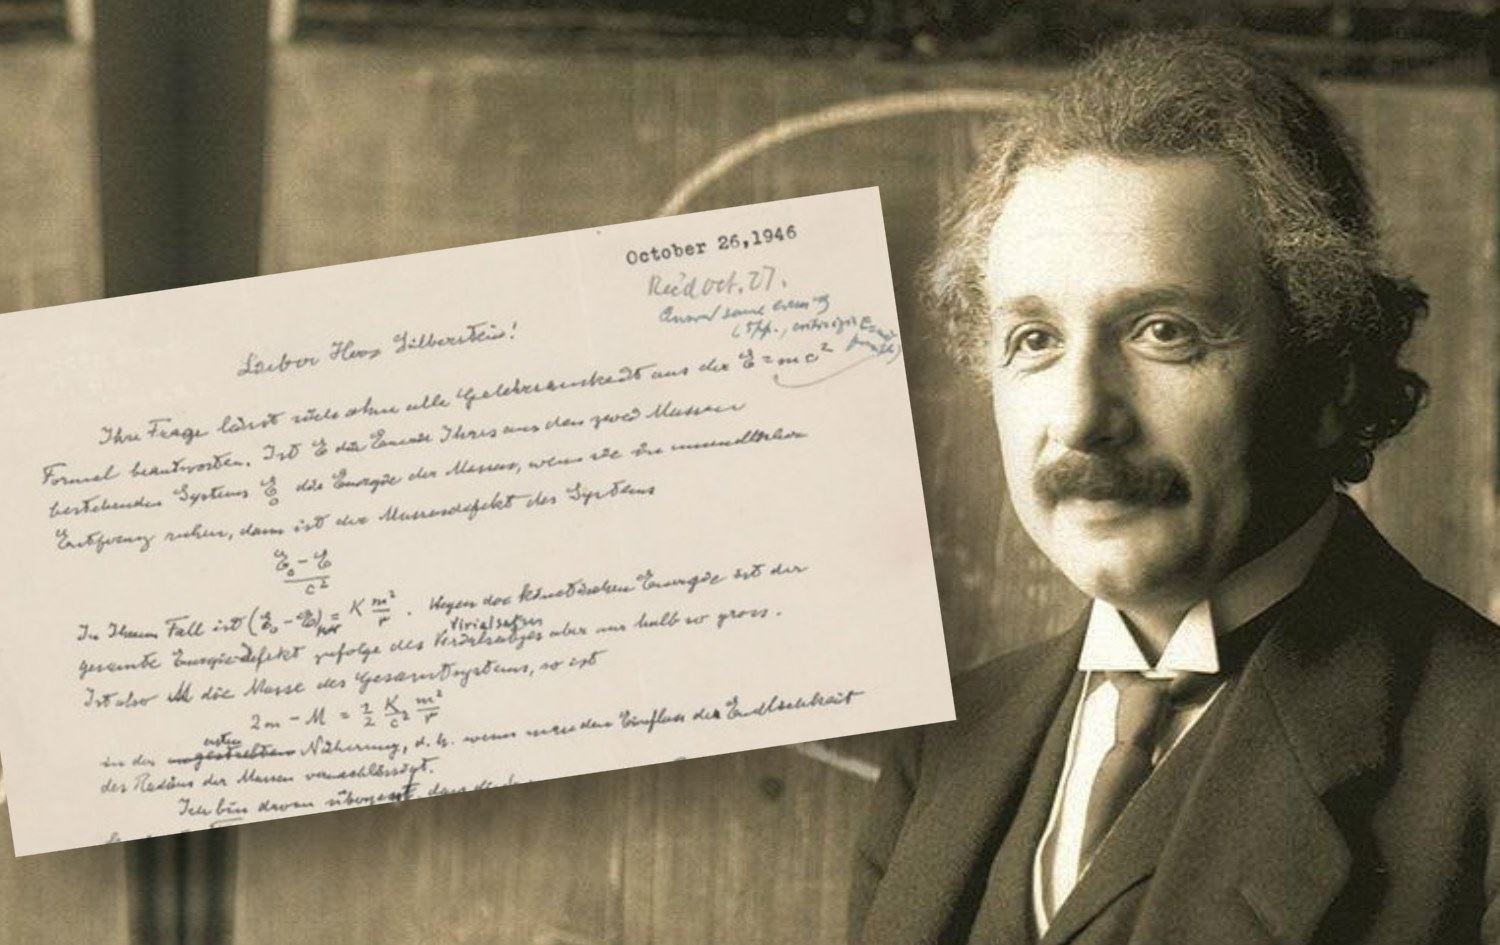 October 26,1946
Rec'd Oct. 27.
Answ'd same even'g
(5pp., E=mc²
Lieber Herr Silberstein!
Ihre Frage lässt sich ohne alle Gelehrsamkeit aus der E = mc²
Formel beantworten. Ist E die Energie Ihres aus den zwei Massen
bestehenden Systems E₀ die Energie der Massen, wenn sie in unendlicher
Entfernung ruhen, dann ist der Massendefekt des Systems
E₀ - E
c²
In Ihrem Fall ist (E₀ - E) = K m²/r . Wegen der kinetischen Energie ist der
Virialsatzes
gesamte Energiedefekt zufolge des Virialsatzes aber nur halb so gross.
Ist also M die Masse des Gesamtsystems, so ist
2m - M = 1/2 K/c² m²/r
ersten
in der Näherung, d. h. wenn man den Einfluss der Endlichkeit
des Radius der Massen vernachlässigt.
Ich bin davon überzeugt, dass